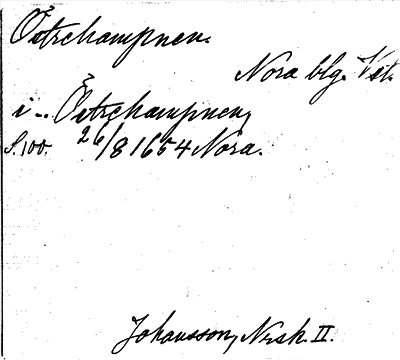 Öetrchampnen.
Nora blg. Vst.
i .. Öetrchampnen,
S. 100. 26/8 1654 Nora.
Johansson, Nrsk. II.